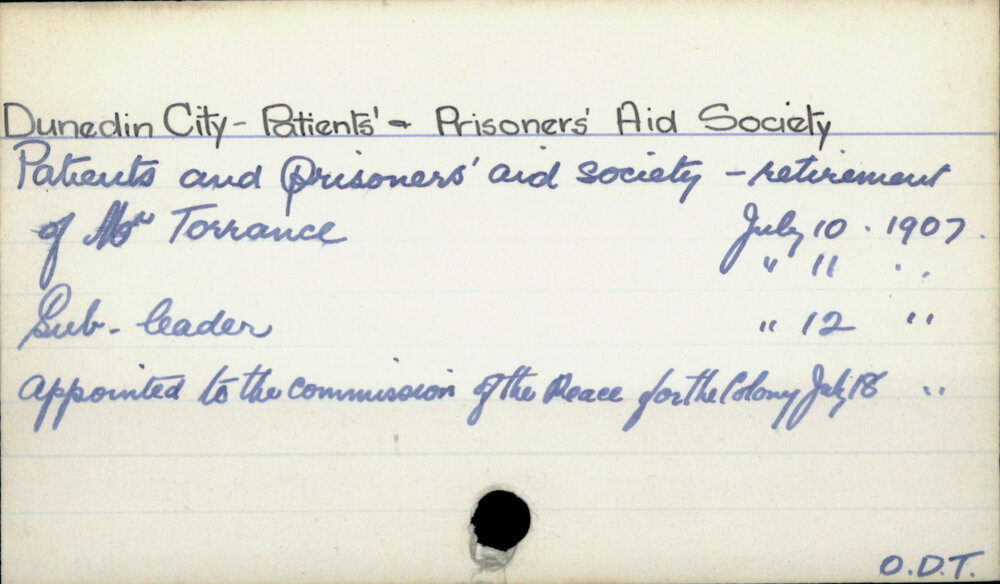 Dunedin City - Patients' - Prisoners' Aid Society
Patients and prisoners' aid society - retirement
of Mr Torrance July 10 . 1907.
" 11 "
Sub-leader " 12 "
Appointed to the commission of the Peace for the Colony July 18 "
O.D.T.